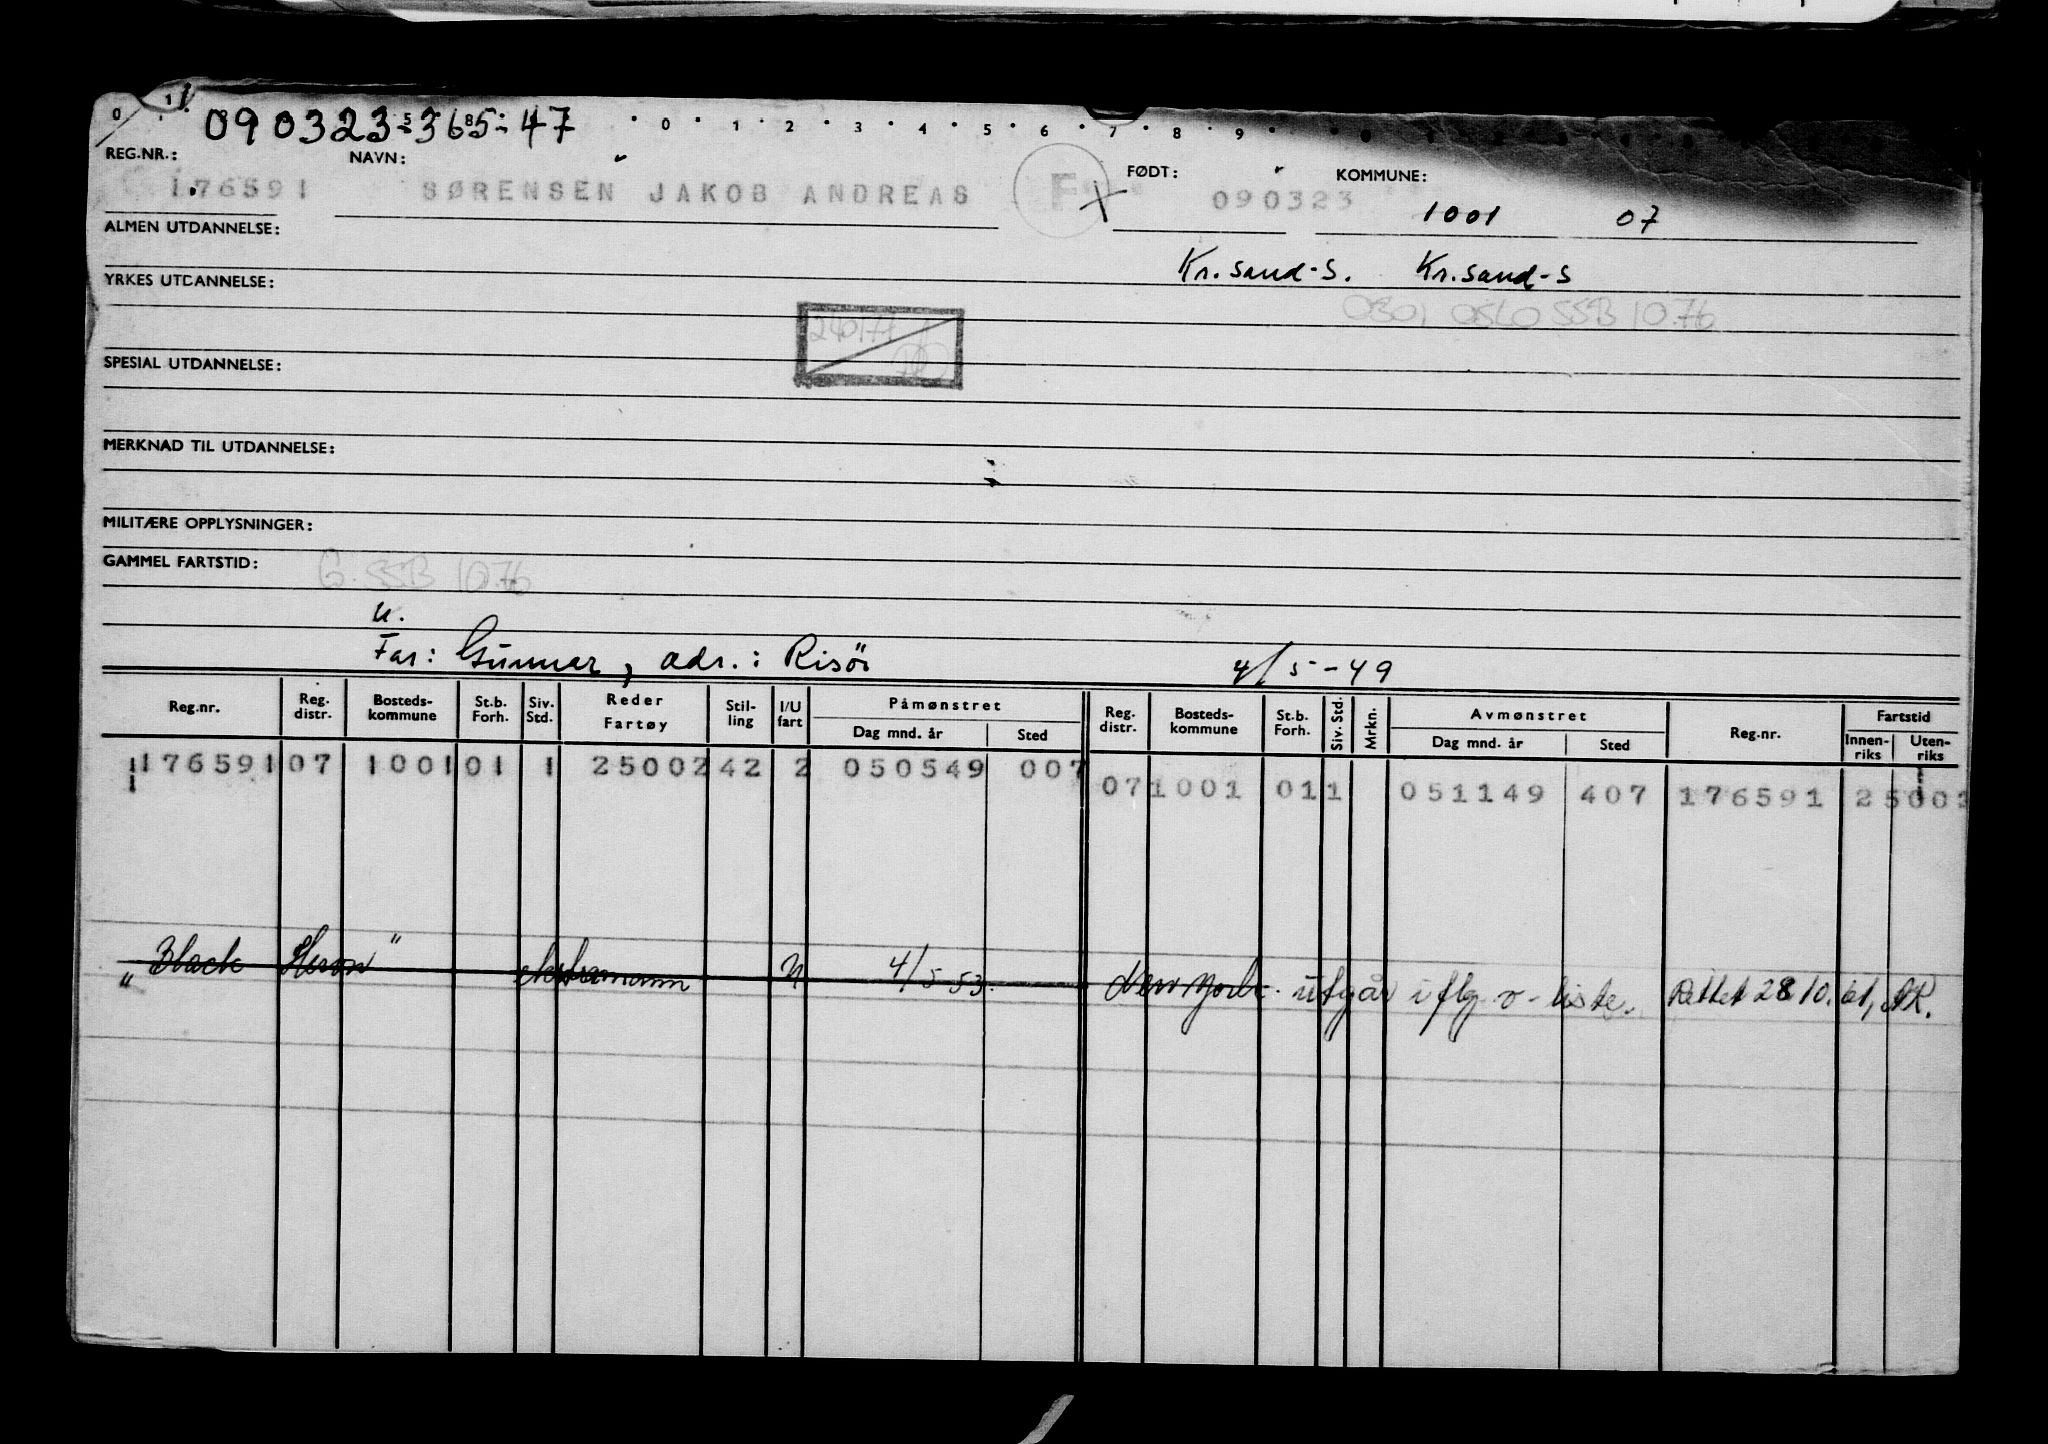 0 1
090323-36547
0 1 2 3 4 5 6 7 8 9
REG.NR.: NAVN: FØDT: KOMMUNE:
176591 SØRENSEN JAKOB ANDREAS F 090323 1001 07
ALMEN UTDANNELSE:
Kr.sand-S. Kr.sand-S
YRKES UTDANNELSE:
0301 OSLO SSB 10.76
240177
SPESIAL UTDANNELSE:
MERKNAD TIL UTDANNELSE:
MILITÆRE OPPLYSNINGER:
GAMMEL FARTSTID: G. SSB 10.76
u.
Far: Gunnar, adr.: Risör 4/5-49
Reg.nr. Reg. distr. Bosteds-kommune St.b. Forh. Siv. Std. Reder Fartøy Stil-ling I/U fart Påmønstret Dag mnd. år Sted Reg. distr. Bosteds-kommune St.b. Forh. Siv. Std. Mrkn. Avmønstret Dag mnd. år Sted Reg.nr. Fartstid Innen-riks Uten-riks
176591 07 1001 01 1 25002 42 2 050549 007
07 1001 01 1 051149 407 176591 25002
"Black Heron" ekstramann U 4/5 53. New York. utgår iflg. v-liste. Rettet 28 10. 61, AK.